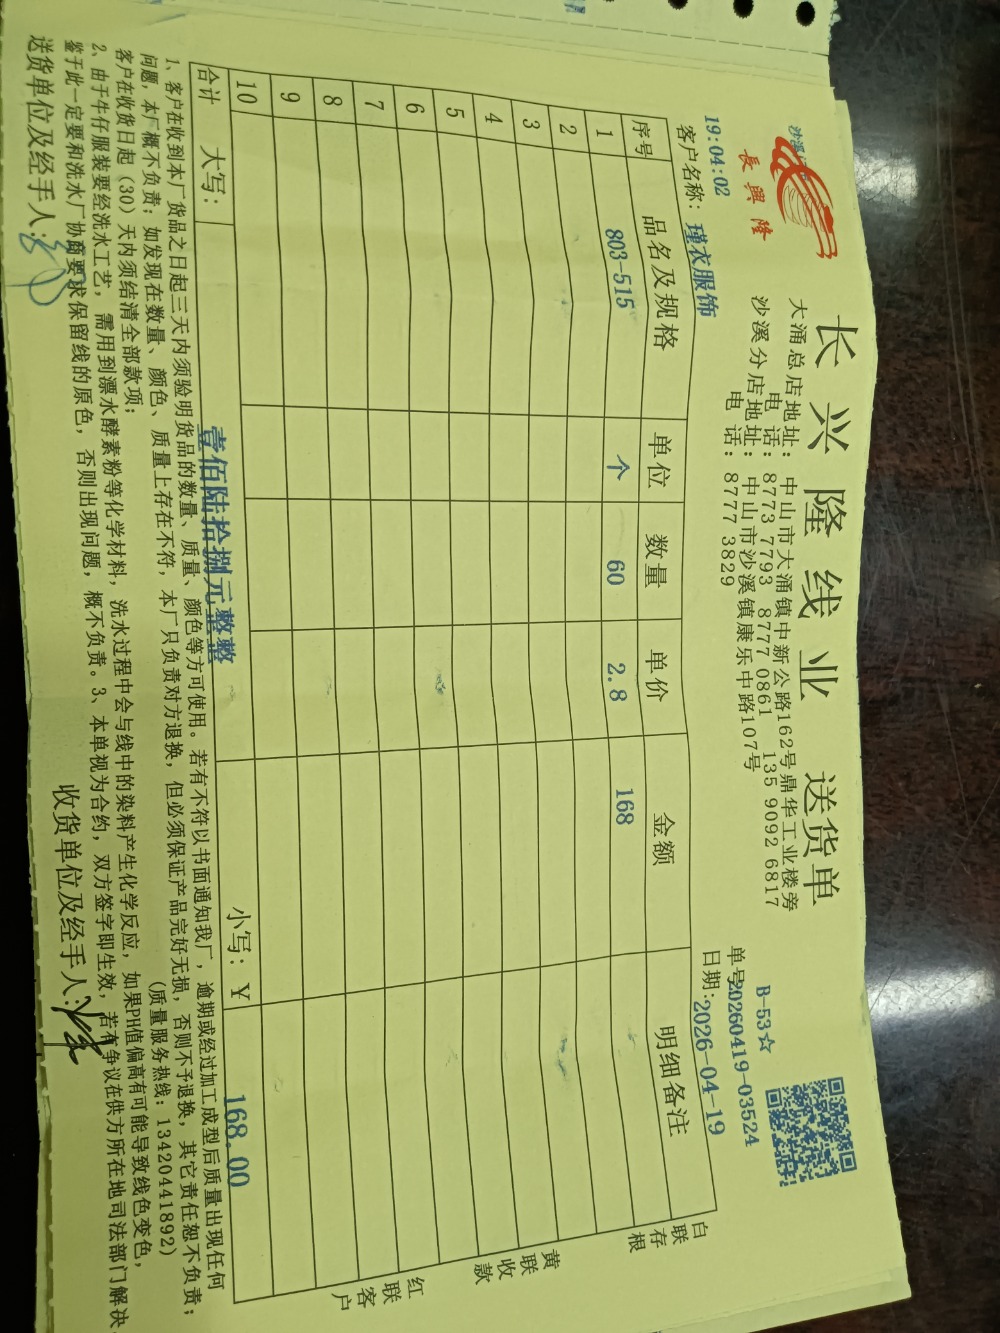 長興隆
长兴隆线业 送货单
大涌总店地址：中山市大涌镇中新公路162号鼎华工业楼旁
电 话：8773 7793 8777 0861 135 9092 6817
沙溪分店地址：中山市沙溪镇康乐中路107号
电 话：8777 3829
B-53☆
单号20260419-03524
19:04:02
日期：2026-04-19
客户名称：瑾衣服饰
序号 品名及规格 单位 数量 单价 金额 明细备注
1 803-515 个 60 2.8 168
2
3
4
5
6
7
8
9
10
合计 大写： 壹佰陆拾捌元整整 小写：¥ 168.00
白联存根
黄联收款
红联客户
1、客户在收到本厂货品之日起三天内须验明货品的数量、质量、颜色等方可使用。若有不符以书面通知我厂，逾期或经过加工成型后质量出现任何
问题，本厂概不负责；如发现在数量、颜色、质量上存在不符，本厂只负责对方退换，但必须保证产品完好无损，否则不予退换，其它责任恕不负责；
客户在收货日起（30）天内须结清全部款项； (质量服务热线：13420441892)
2、由于牛仔服装要经洗水工艺，需用到漂水酵素粉等化学材料，洗水过程中会与线中的染料产生化学反应，如果PH值偏高有可能导致线色变色，
鉴于此一定要和洗水厂协商要求保留线的原色，否则出现问题，概不负责。3、本单视为合约，双方签字即生效，若有争议在供方所在地司法部门解决
送货单位及经手人： 收货单位及经手人：